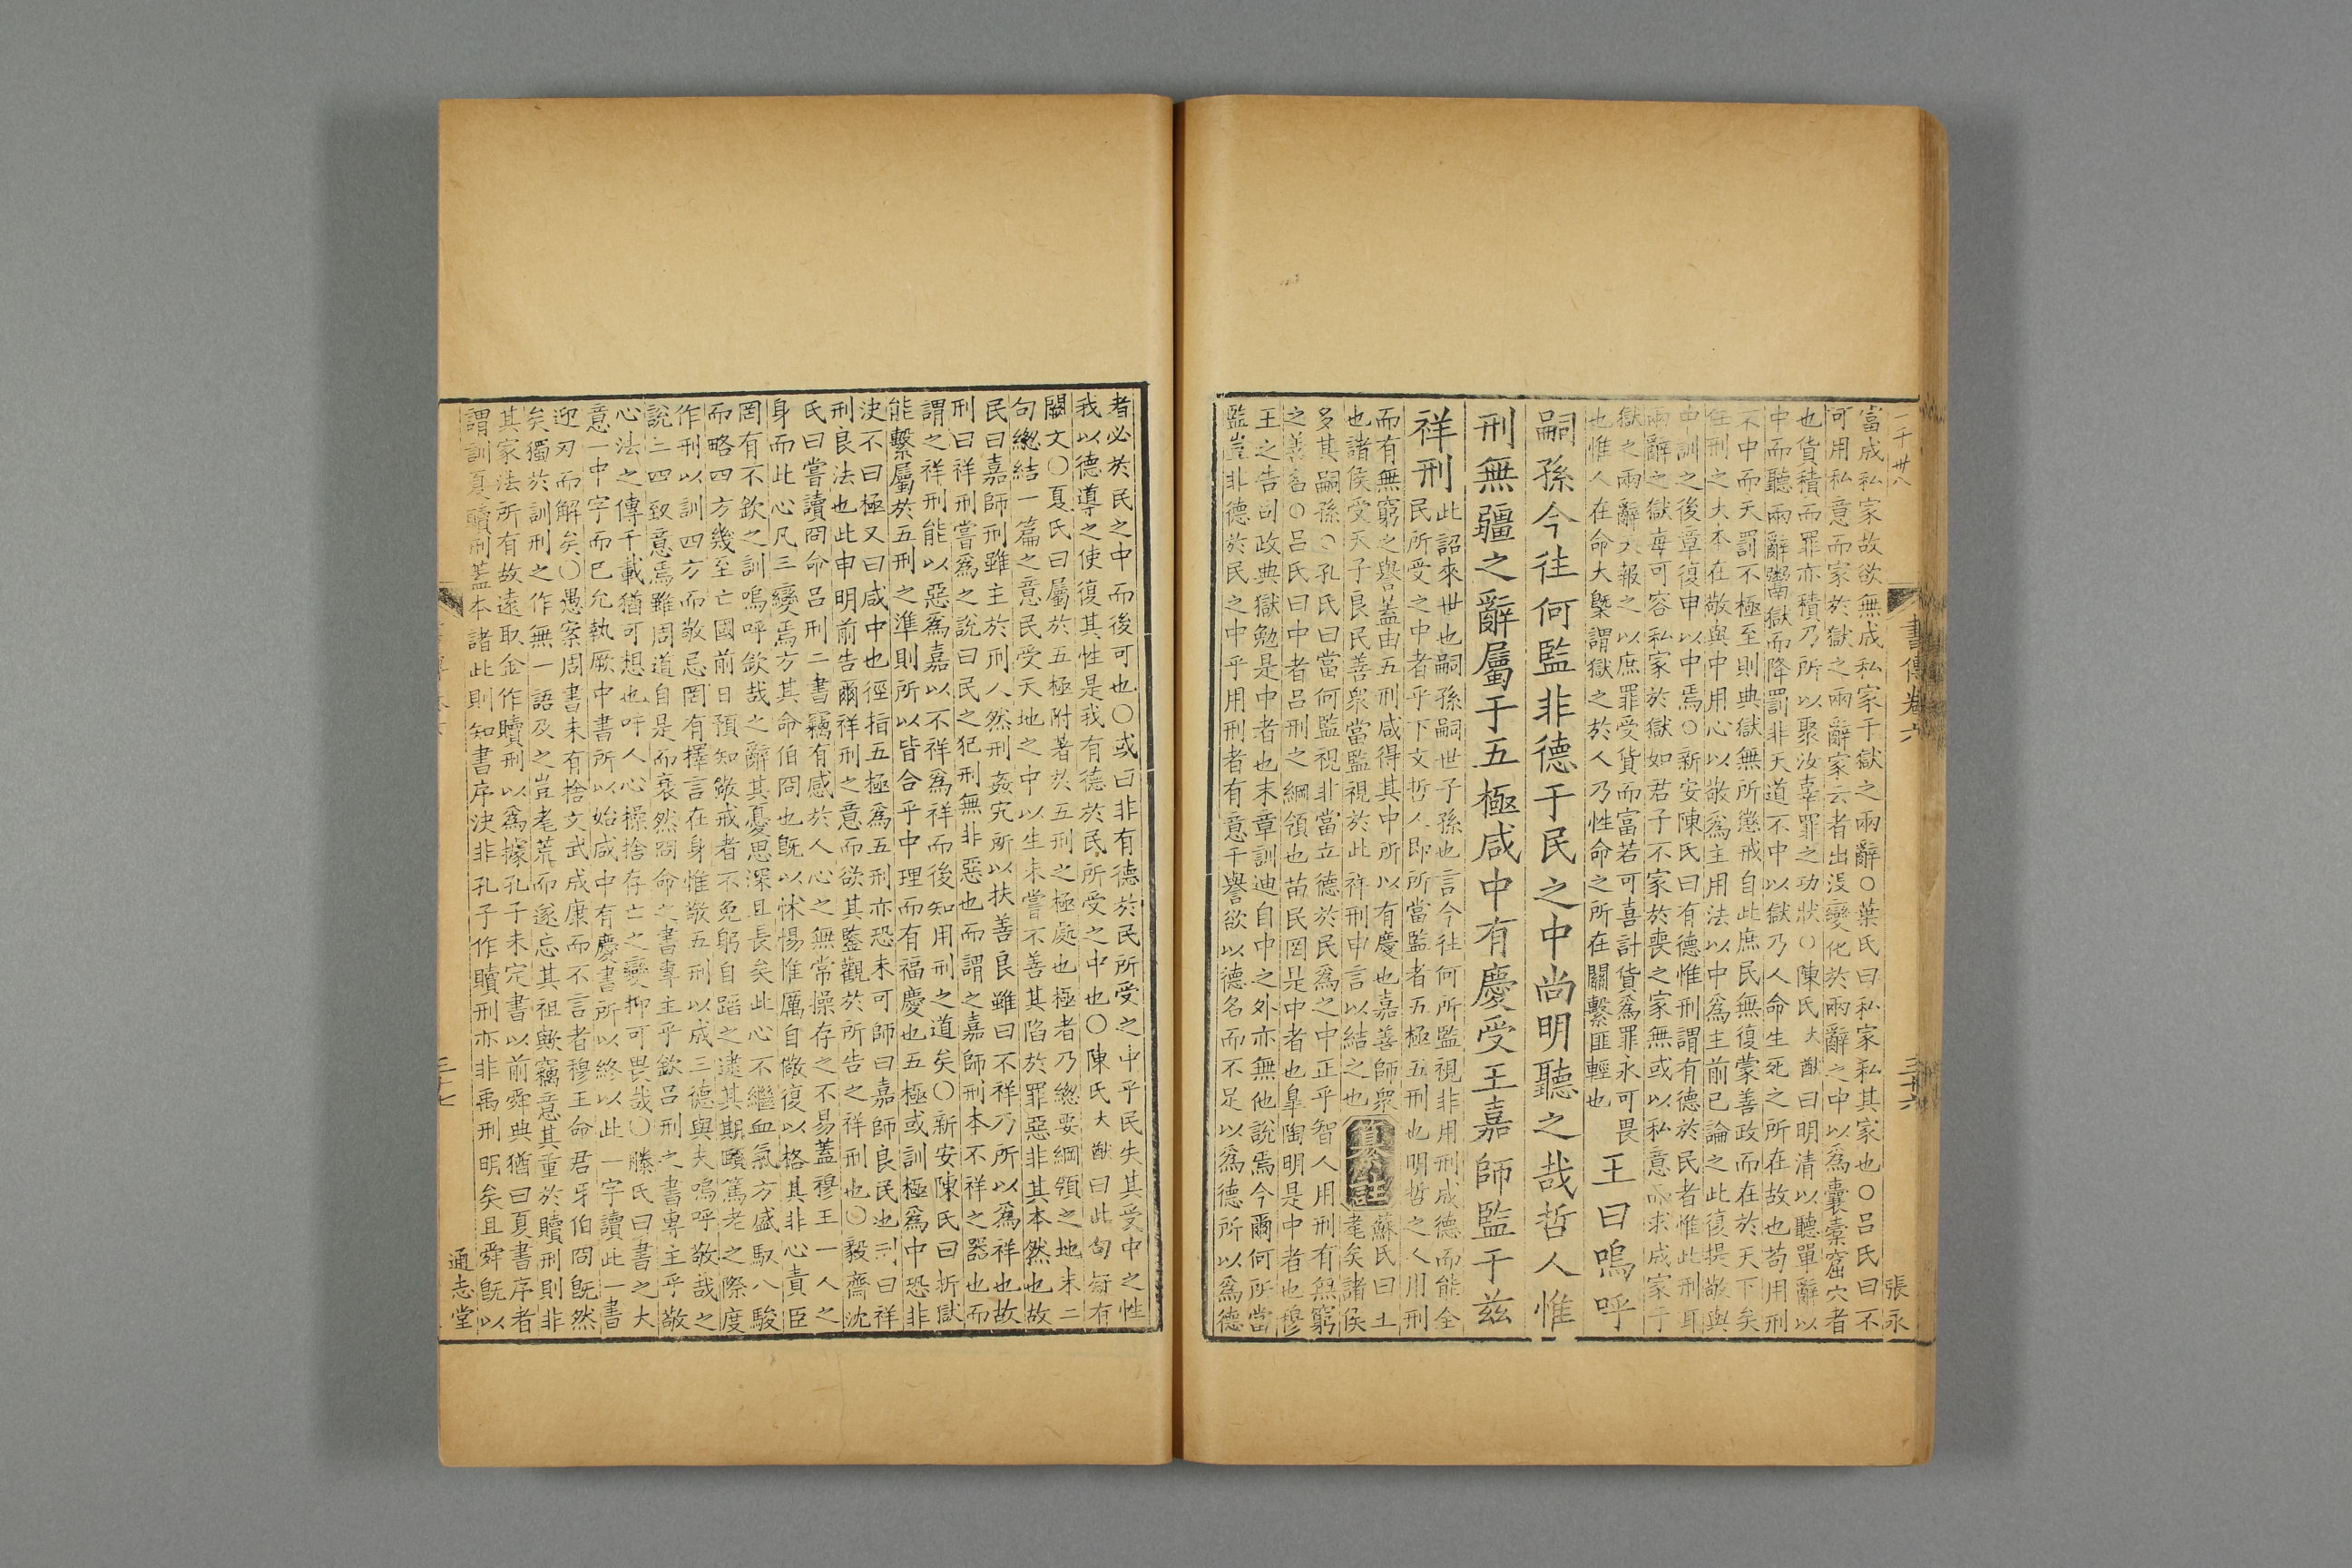 一千卅八
書傳卷六
三十六
張永
當成私家故欲無成私家于獄之兩辭○葉氏曰私家私其家也○呂氏曰不
可用私意而家於獄之兩辭家云者出沒變化於兩辭之中以為囊橐窟穴者
也貨積而罪亦積乃所以聚汝辜罪之功狀○陳氏大猷曰明清以聽單辭以
中而聽兩辭鬻獄而降罰非天道不中以獄乃人命生死之所在故也苟用刑
不中而天罰不極至則典獄無所懲戒自此庶民無復蒙善政而在於天下矣
任刑之大本在敬與中用心以敬為主用法以中為主前已論之此復提敬與
中訓之後章復申以中焉○新安陳氏曰有德惟刑謂有德於民者惟此刑耳
兩辭之獄毋可容私家於獄如君子不家於喪之家無或以私意而求成家于
獄之兩辭天報之以庶罪受貨而富若可喜計貨為罪永可畏
也惟人在命大槩謂獄之於人乃性命之所在關繫匪輕也
王曰嗚呼
嗣孫今往何監非德于民之中尚明聽之哉哲人惟
刑無疆之辭屬于五極咸中有慶受王嘉師監于茲
祥刑
此詔來世也嗣孫嗣世子孫也言今往何所監視非用刑成德而能全
民所受之中者乎下文哲人即所當監者五極五刑也明哲之人用刑
而有無窮之譽蓋由五刑咸得其中所以有慶也嘉善師衆
也諸侯受天子良民善衆當監視於此祥刑申言以結之也
纂註
蘇氏曰土
耄矣諸侯
多其嗣孫○孔氏曰當何監視非當立德於民為之中正乎智人用刑有無窮
之善名○呂氏曰中者呂刑之綱領也苗民罔是中者也臯陶明是中者也穆
王之告司政典獄勉是中者也末章訓迪自中之外亦無他說焉今爾何所當
監豈非德於民之中乎用刑者有意于譽欲以德名而不足以為德所以為德
者必於民之中而後可也○或曰非有德於民所受之中乎民失其受中之性
我以德導之使復其性是我有德於民所受之中也○陳氏大猷曰此句疑有
闕文○夏氏曰屬於五極附著於五刑之極處也極者乃總要綱領之地末二
句總結一篇之意民受天地之中以生未嘗不善其陷於罪惡非其本然也故
民曰嘉師刑雖主於刑人然刑姦宄所以扶善良雖曰不祥乃所以為祥也故
刑曰祥刑嘗為之說曰民之犯刑無非惡也而謂之嘉師刑本不祥之器也而
謂之祥刑能以惡為嘉以不祥為祥而後知用刑之道矣○新安陳氏曰折獄
能繫屬於五刑之準則所以皆合乎中理而有福慶也五極或訓極為中恐非
決不曰極又曰咸中也徑指五極為五刑亦恐未可師曰嘉師良民也刑曰祥
刑良法也此申明前告爾祥刑之意而欲其監觀於所告之祥刑也○毅齋沈
氏曰嘗讀冏命呂刑二書竊有感於人心之無常操存之不易蓋穆王一人之
身而此心凡三變焉方其命伯冏也既以怵惕惟厲自儆復以格其非心責臣
罔有不欽之訓嗚呼欽哉之辭其憂思深且長矣此心不繼血氣方盛馭八駿
而略四方幾至亡國前日預知儆戒者不免躬自蹈之逮其期頤篤老之際度
作刑以訓四方而敬忌罔有擇言在身惟敬五刑以成三德與夫嗚呼敬哉之
說二四致意焉雖周道自是而衰然冏命之書專主乎欽呂刑之書專主乎敬
心法之傳千載猶可想也吁人心操捨存亡之變抑可畏哉○滕氏曰書之大
意一中字而已允執厥中書所以始咸中有慶書所以終以此一字讀此一書
迎刃而解矣○愚案周書未有捨文武成康而不言者穆王命君牙伯冏既然
矣獨於訓刑之作無一語及之豈耄荒而遂忘其祖歟竊意其重於贖刑則非
其家法所有故遠取金作贖刑以為據孔子未定書以前舜典猶曰夏書序者
謂訓夏贖刑蓋本諸此則知書序決非孔子作贖刑亦非禹刑明矣且舜既以
三十七
通志堂